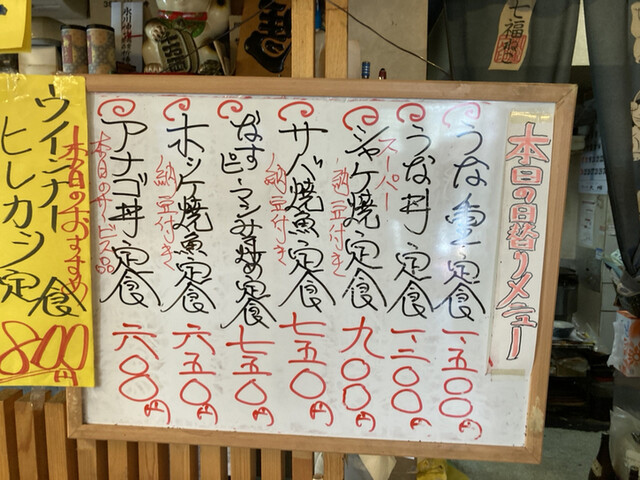 本日の日替りメニュー
うな重定食 一、五〇〇円
スーパー
うな丼定食 一、三〇〇円
シャケ焼定食 九〇〇円
納豆付き
サバ焼魚定食 七五〇円
納豆付き
なすピーマンみそ炒め定食 七五〇円
ホッケ焼魚定食 六五〇円
納豆付き
アナゴ丼定食 六〇〇円
本日のサービス品
本日のおすすめ
ウインナー
ヒレカツ定食
800円
七福神